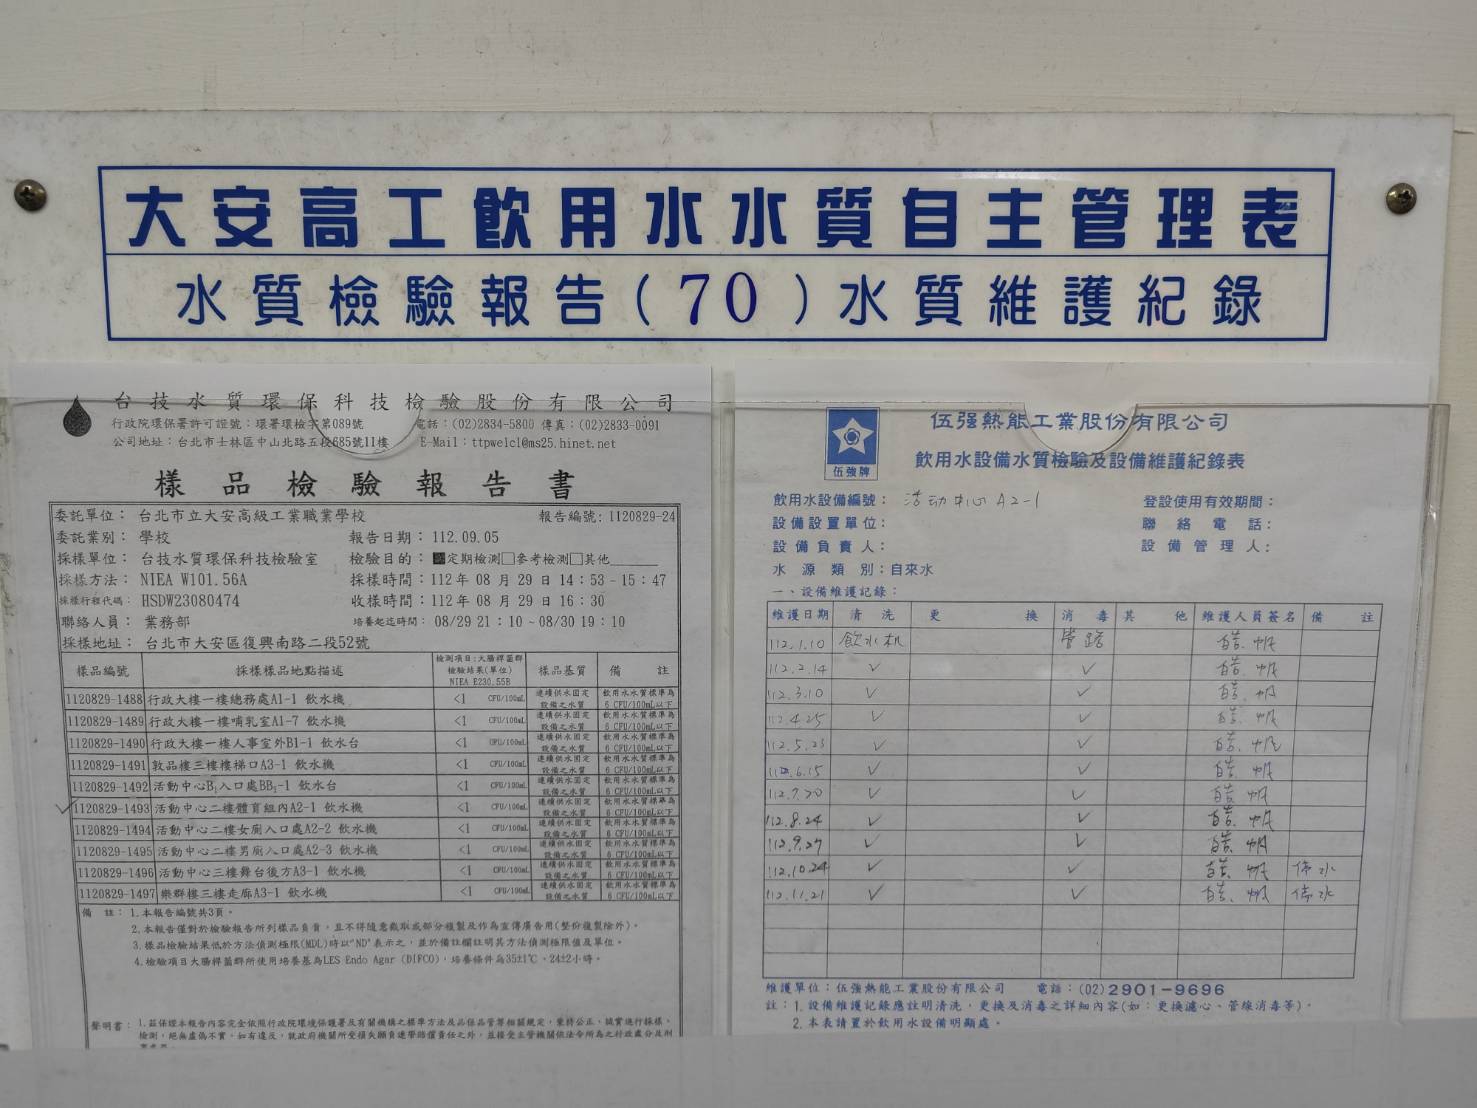 大安高工飲用水水質自主管理表
水質檢驗報告(70)水質維護紀錄
台技水質環保科技檢驗股份有限公司
行政院環保署許可證號：環署環檢字第089號 電話：(02)2834-5800 傳真：(02)2833-0091
公司地址：台北市士林區中山北路五段685號11樓 E-Mail：ttpwelcl@ms25.hinet.net
樣品檢驗報告書
委託單位：台北市立大安高級工業職業學校 報告編號：1120829-24
委託業別：學校 報告日期：112.09.05
採樣單位：台技水質環保科技檢驗室 檢驗目的：■定期檢測□參考檢測□其他
採樣方法：NIEA W101.56A 採樣時間：112年08月29日14：53-15：47
採樣行程代碼：HSDW23080474 收樣時間：112年08月29日16：30
聯絡人員：業務部 培養起迄時間：08/29 21：10~08/30 19：10
採樣地址：台北市大安區復興南路二段52號
樣品編號 採樣樣品地點描述 檢測項目:大腸桿菌群 檢驗結果(單位) NIEA E230.55B 樣品基質 備註
1120829-1488 行政大樓一樓總務處A1-1 飲水機 <1 CFU/100mL 連續供水固定設備之水質 飲用水水質標準為6 CFU/100mL以下
1120829-1489 行政大樓一樓哺乳室A1-7 飲水機 <1 CFU/100mL 連續供水固定設備之水質 飲用水水質標準為6 CFU/100mL以下
1120829-1490 行政大樓一樓人事室外B1-1 飲水台 <1 CFU/100mL 連續供水固定設備之水質 飲用水水質標準為6 CFU/100mL以下
1120829-1491 敦品樓三樓樓梯口A3-1 飲水機 <1 CFU/100mL 連續供水固定設備之水質 飲用水水質標準為6 CFU/100mL以下
1120829-1492 活動中心B₁入口處BB₁-1 飲水台 <1 CFU/100mL 連續供水固定設備之水質 飲用水水質標準為6 CFU/100mL以下
1120829-1493 活動中心二樓體育組內A2-1 飲水機 <1 CFU/100mL 連續供水固定設備之水質 飲用水水質標準為6 CFU/100mL以下
1120829-1494 活動中心二樓女廁入口處A2-2 飲水機 <1 CFU/100mL 連續供水固定設備之水質 飲用水水質標準為6 CFU/100mL以下
1120829-1495 活動中心二樓男廁入口處A2-3 飲水機 <1 CFU/100mL 連續供水固定設備之水質 飲用水水質標準為6 CFU/100mL以下
1120829-1496 活動中心三樓舞台後方A3-1 飲水機 <1 CFU/100mL 連續供水固定設備之水質 飲用水水質標準為6 CFU/100mL以下
1120829-1497 樂群樓三樓走廊A3-1 飲水機 <1 CFU/100mL 連續供水固定設備之水質 飲用水水質標準為6 CFU/100mL以下
備註：1.本報告編號共3頁。
2.本報告僅對於檢驗報告所列樣品負責，且不得隨意截取或部分複製及作為宣傳廣告用(整份複製除外)。
3.樣品檢驗結果低於方法偵測極限(MDL)時以"ND"表示之，並於備註欄註明其方法偵測極限值及單位。
4.檢驗項目大腸桿菌群所使用培養基為LES Endo Agar (DIFCO)，培養條件為35±1℃、24±2小時。
聲明書：1.茲保證本報告內容完全依照行政院環境保護署及有關機構之標準方法及品保品管等相關規定，秉持公正、誠實進行採樣、
檢測，絕無虛偽不實，如有違反，就政府機關所受損失願負連帶賠償責任之外，並接受主管機關依法令所為之行政處分及刑
伍強牌
伍强熱能工業股份有限公司
飲用水設備水質檢驗及設備維護紀錄表
飲用水設備編號：活动中心A2-1 登設使用有效期間：
設備設置單位： 聯絡電話：
設備負責人： 設備管理人：
水源類別：自來水
一、設備維護記錄：
維護日期 清洗 更換 消毒 其他 維護人員簽名 備註
112.1.10 飲水机 管路
112.2.14 ✓ ✓
112.3.10 ✓ ✓
112.4.25 ✓ ✓
112.5.23 ✓ ✓
112.6.15 ✓ ✓
112.7.20 ✓ ✓
112.8.24 ✓ ✓
112.9.27 ✓ ✓
112.10.24 ✓ ✓ 停水
112.11.21 ✓ ✓ 停水
維護單位：伍強熱能工業股份有限公司 電話：(02)2901-9696
註：1.設備維護記錄應註明清洗、更換及消毒之詳細內容(如：更換濾心、管線消毒等)。
2.本表請置於飲用水設備明顯處。